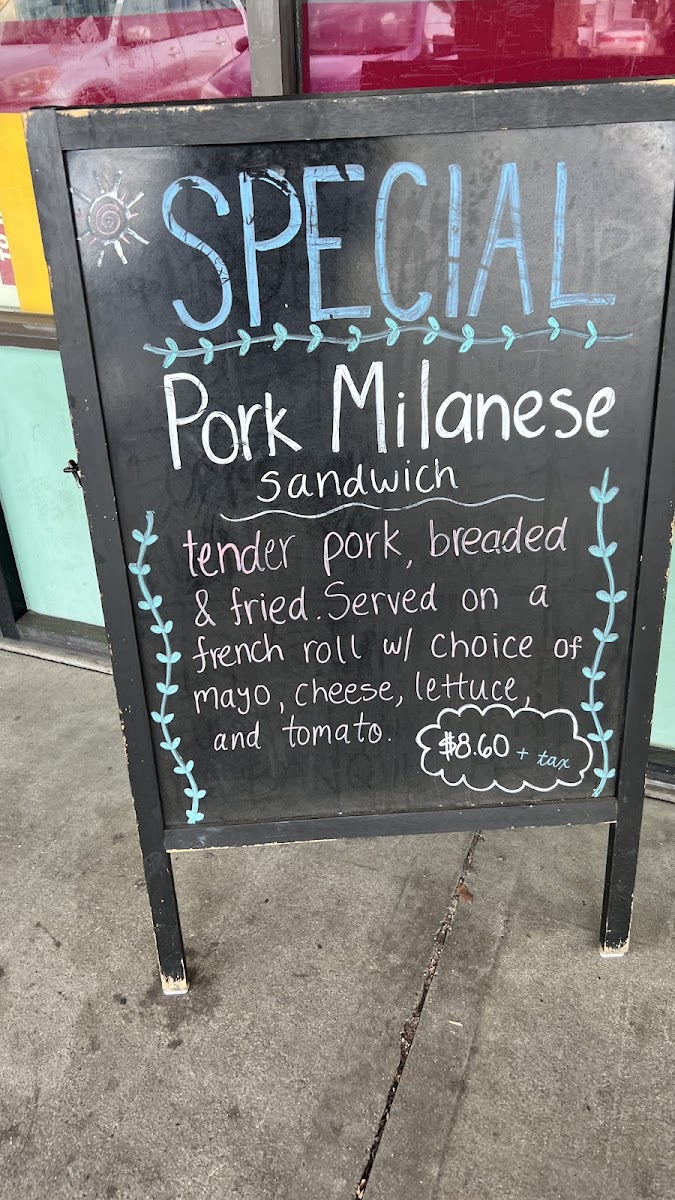 SPECIAL
Pork Milanese
sandwich
tender pork, breaded
& fried. Served on a
french roll w/ choice of
mayo, cheese, lettuce,
and tomato.
$8.60 + tax